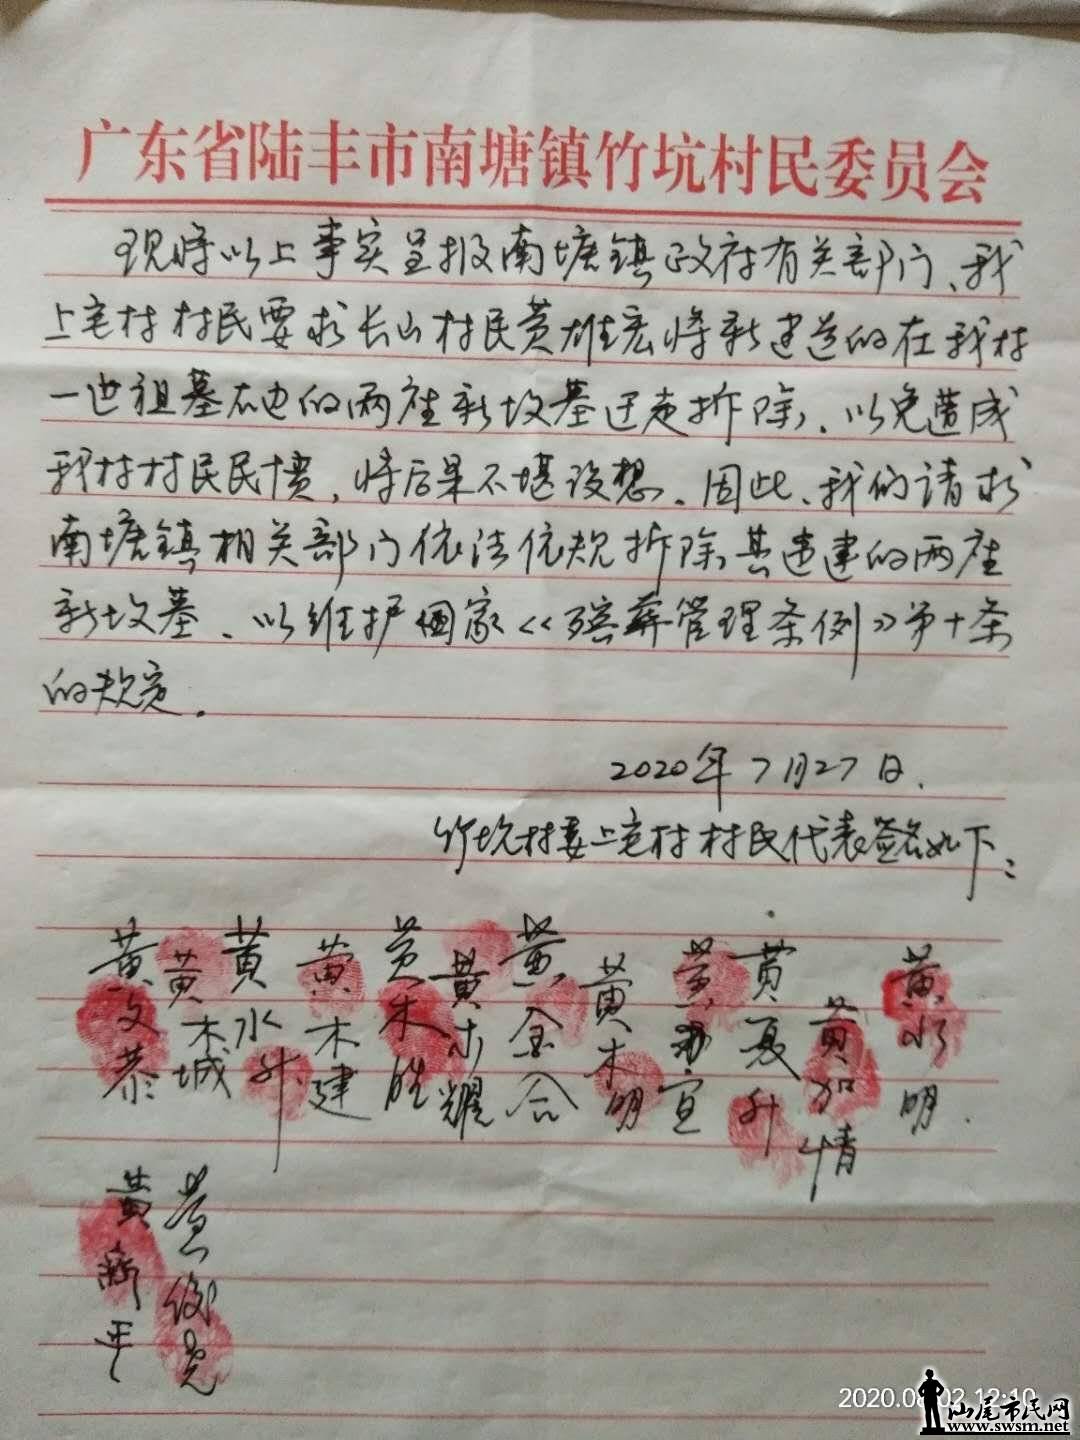 广东省陆丰市南塘镇竹坑村民委员会
现将以上事实呈报南塘镇政府有关部门、我
上宅村村民要求长山村民黄雄宏将新建造的在我村
一世祖墓右边的两座新坟墓迁走拆除、以免造成
我村村民民愤,将后果不堪设想、因此、我们请求
南塘镇相关部门依法依规拆除其违建的两座
新坟墓、以维护国家《殡葬管理条例》第十条
的规定。
2020年7月27日.
竹坑村委上宅村村民代表签名如下:
黄文恭
黄木城
黄水升
黄木建
黄木胜
黄木耀
黄金合
黄木明
黄宜
黄夏升
黄加情
黄水明.
黄平
黄俊光
2020.08.02 12:10
汕尾市民网
www.swsm.net